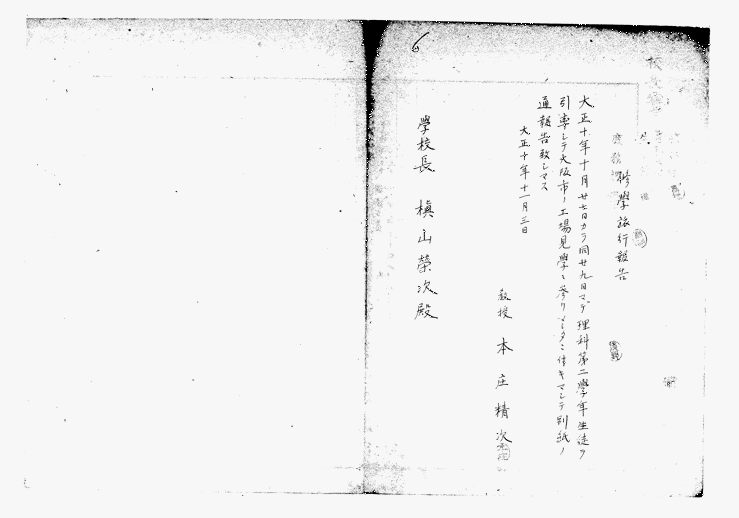 6
修學旅行報告
大正十年十月廿七日カラ同廿九日マデ理科第二學年生徒ヲ
引率シテ大阪市ノ工場見學ニ參リマシタニ付キマシテ別紙ノ
通報告致シマス
大正十年十一月三日
教授 本庄精次
學校長 槇山榮次殿